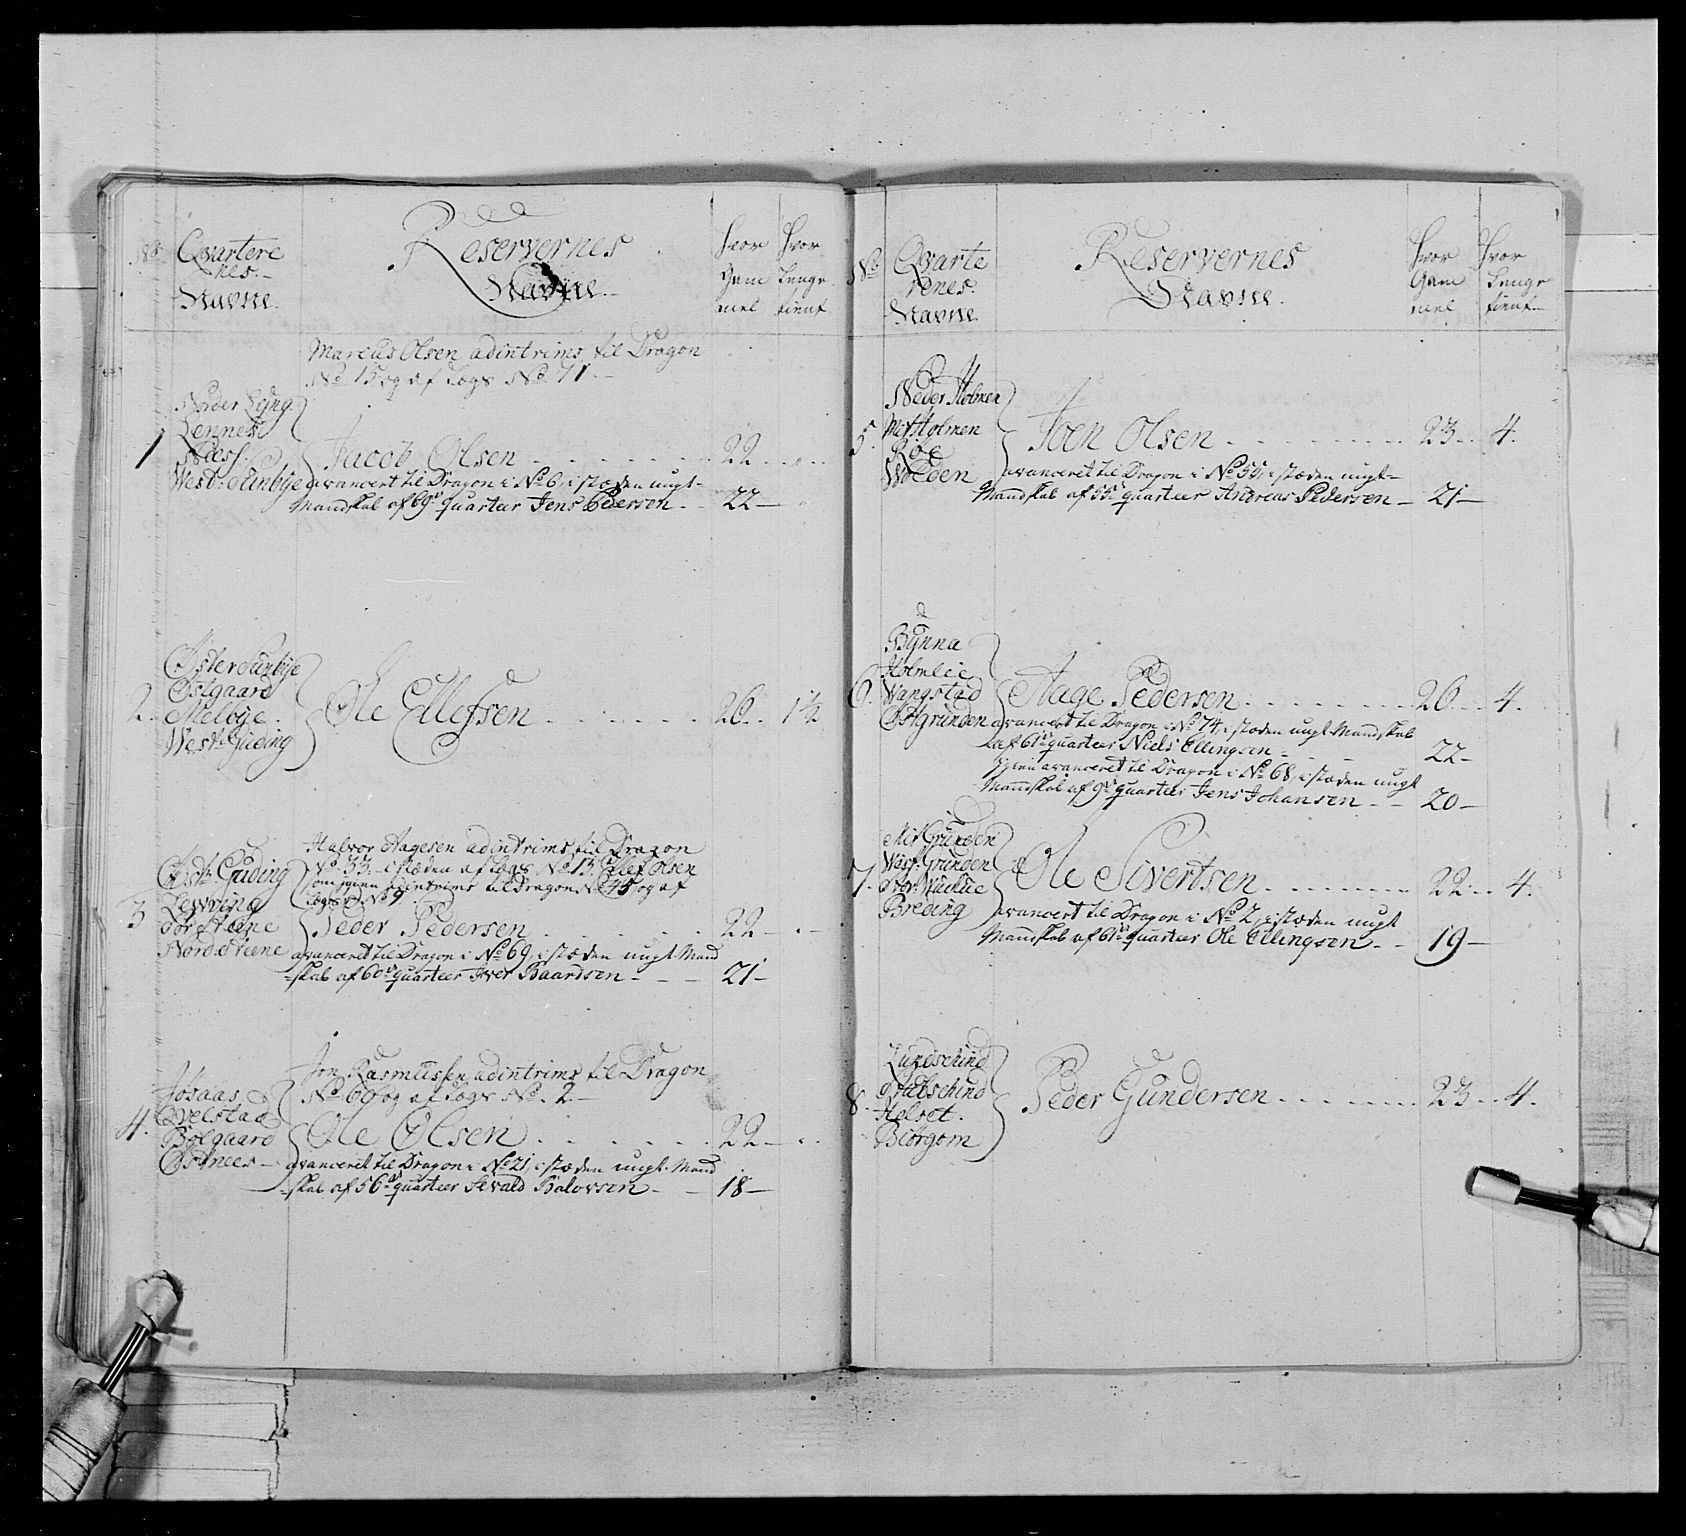 No
Qvartere
nes
Navne.
Reservernes
Navne
hvor
Gam
mel
hvor
Lenge
tient
Marcus Olsen adintrims til Dragon
No 15 og af Logs No 71.
Nordre Lyng
Lennes
Nees
West Sunbÿe
1
Jacob Olsen 22
avancert til Dragon i No 6, i stæden ungt
Mandskab af 69de quarteer Jens Pedersen 22
Øster Sunbÿe
Østgaard
Melbÿe
West Guding
2
Ole Ellefsen 26 1½
Halvor Aagesen adintrims til Dragon
No 33 i stæden af Logs No 13 Ellef Olsen
som igien adintrims til Dragon No 45 og af
Logs No 9
Øst Guding
Levring
Nord Steene
3
Peder Pedersen 22
avanceret til Dragon i No 69, i stæden ungt Mand
skab af 60de quarteer Iver Baardsen 21
Jon Rasmussen adintrims til Dragon
No 66 og af Logs No 2
Aasaas
Qvelstad
Bolgaard
Østnees
4.
Ole Olsen 22
avanceret til Dragon i No 21, i stæden ungt Mand
skab af 56de quarteer Sevald Halovsen 18
No
Qvarte
renes
Navne
Reservernes
Navne.
hvor
Gam
mel
hvor
Lenge
tient
Neder Holmen
Mit Holmen
Roe
Wolden
5.
Joen Olsen 23 4.
avanceret til Dragon i No 55, i stæden ungt
Mandskab af 55de quarteer Andreas Pedersen 21
Bÿnna
Holmlie
Wangstad
Østgrunden
6.
Aage Pedersen 26 4.
avancert til Dragon i No 74, i stæden ungt Mandskab
af 61de quarteer Niels Ellingsen 22
igien avanceret til Dragon i No 68, i stæden ungt
Mandskab af 9de quarteer Jens Johansen 20
Mit Grunden
West Grunden
Breding
7.
Ole Sivertsen 22 4.
avancert til Dragon i No 2, i stæden ungt
Mandskab af 61de quarteer Ole Ellingsen 19
Lundschind
Braaschind
Helset.
Biörgom
8.
Peder Gundersen 23 4.